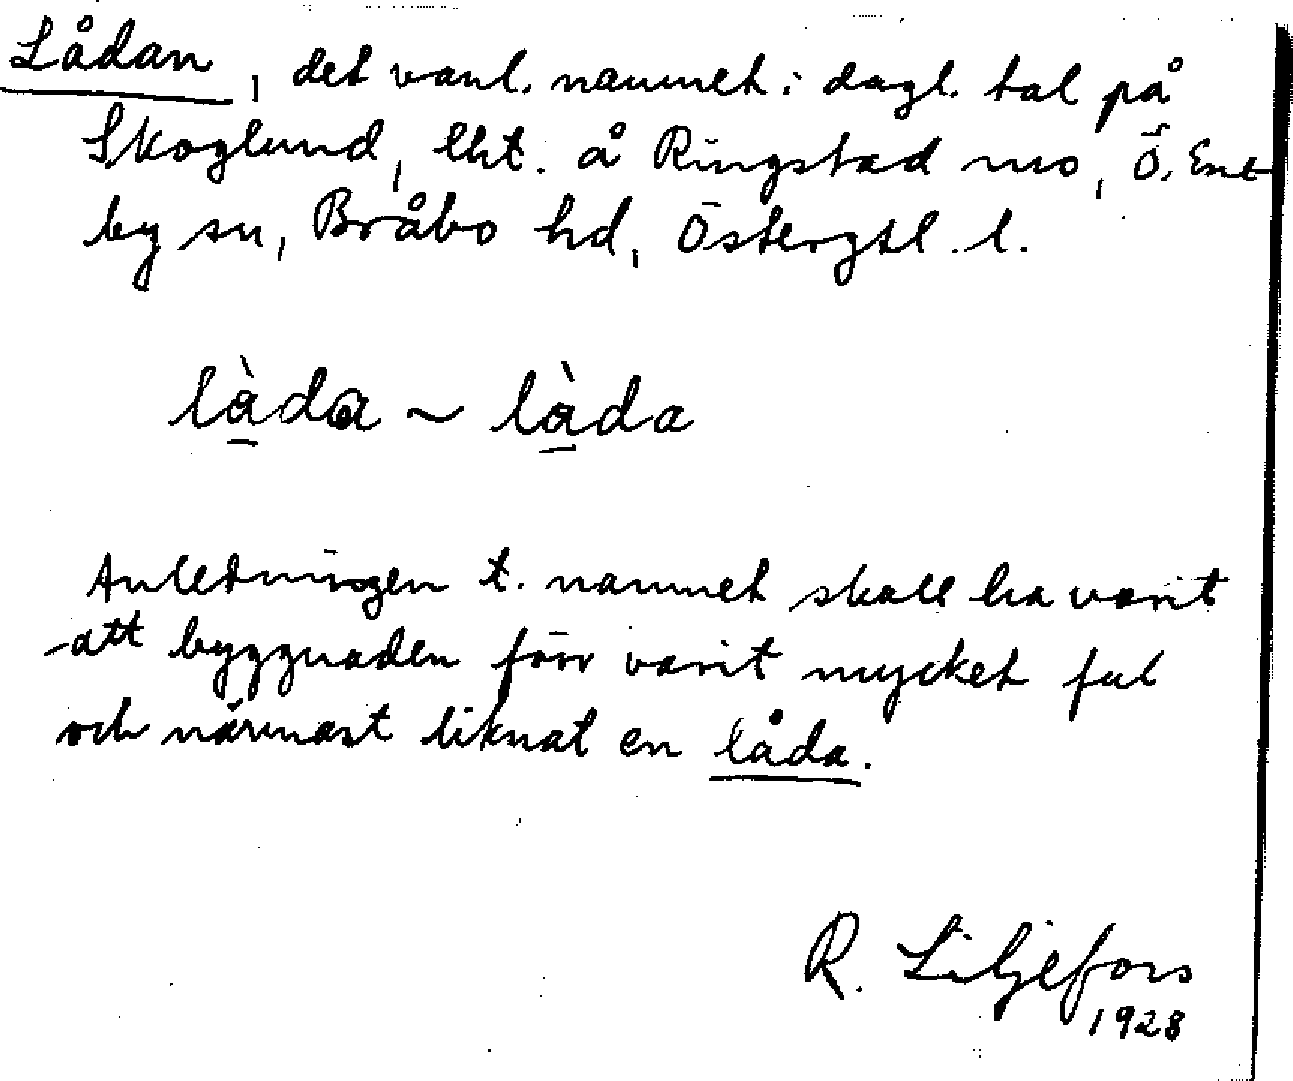 Lådan, det vanl. namnet i dagl. tal på
Skoglund, lht. å Ringstad mo, Ö. Ene
by sn, Bråbo hd, Östergtl. l.
làda ~ làda
Anledningen t. namnet skall ha varit
att byggnaden förr varit mycket ful
och närmast liknat en låda.
R. Liljefors
1928